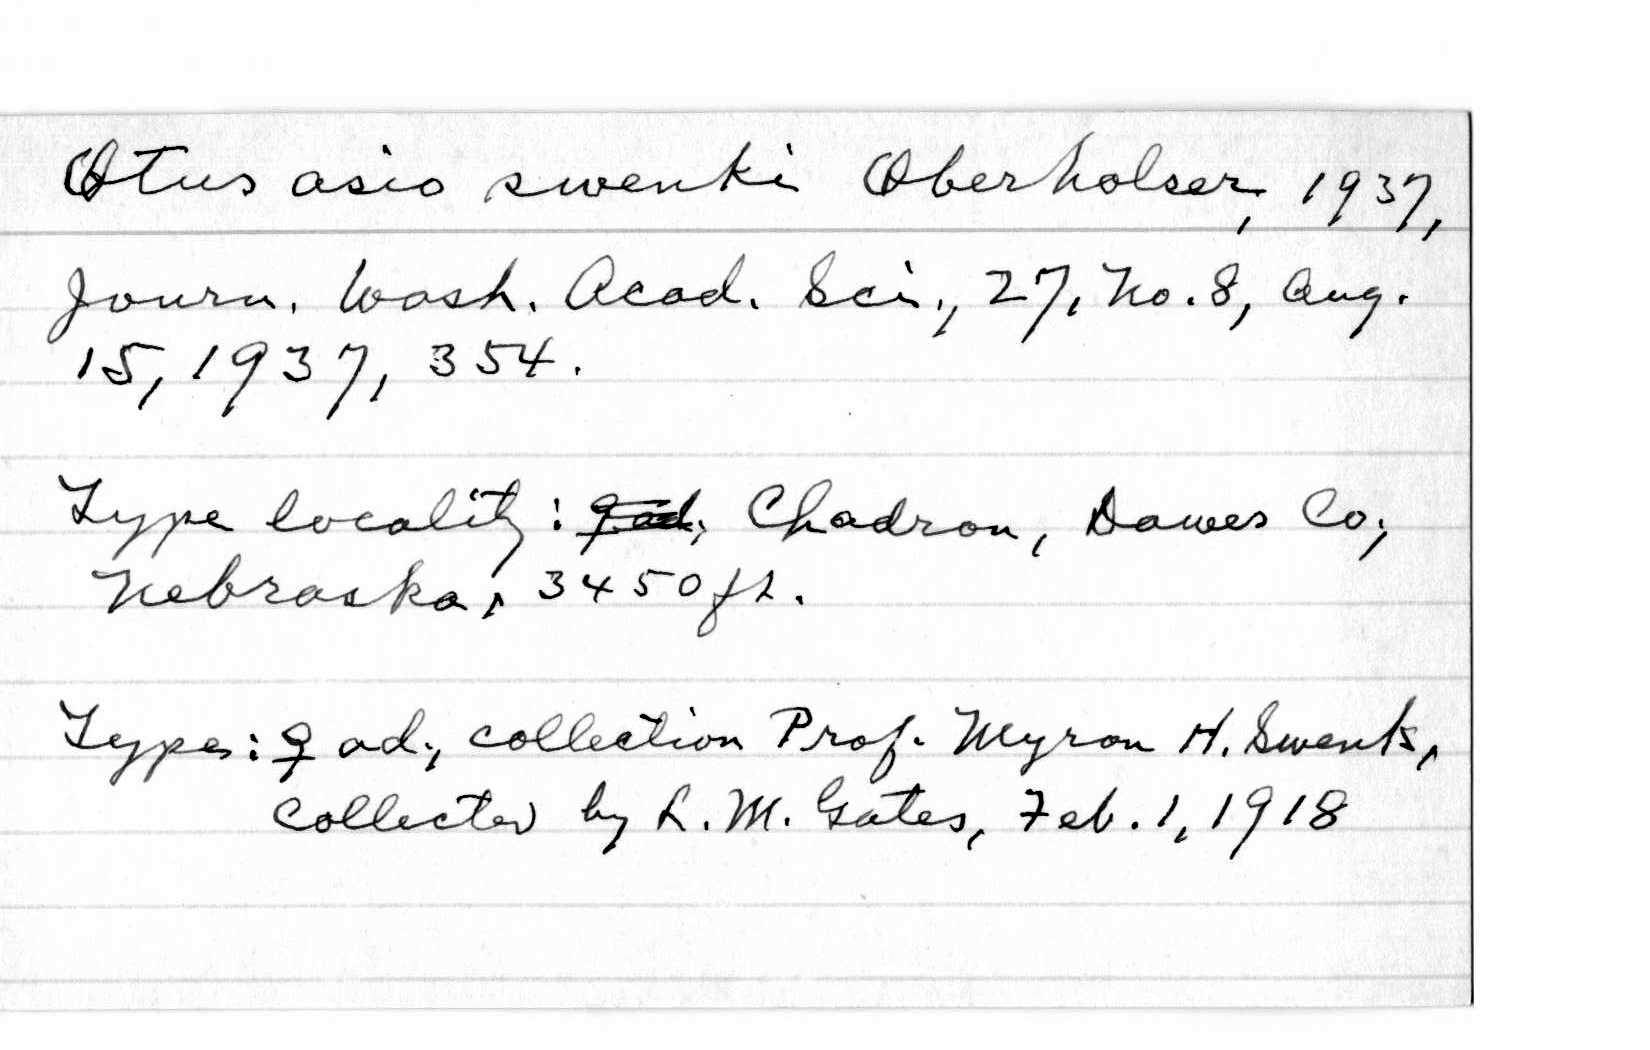 Otus asio swenki Oberholser, 1937,
Journ. Wash. Acad. Sci., 27, No. 8, Aug.
15, 1937, 354.
Type locality: ♀ ad., Chadron, Dawes Co.,
Nebraska, 3450 ft.
Type: ♀ ad., collection Prof. Myron H. Swenk,
collected by L. M. Gates, Feb. 1, 1918